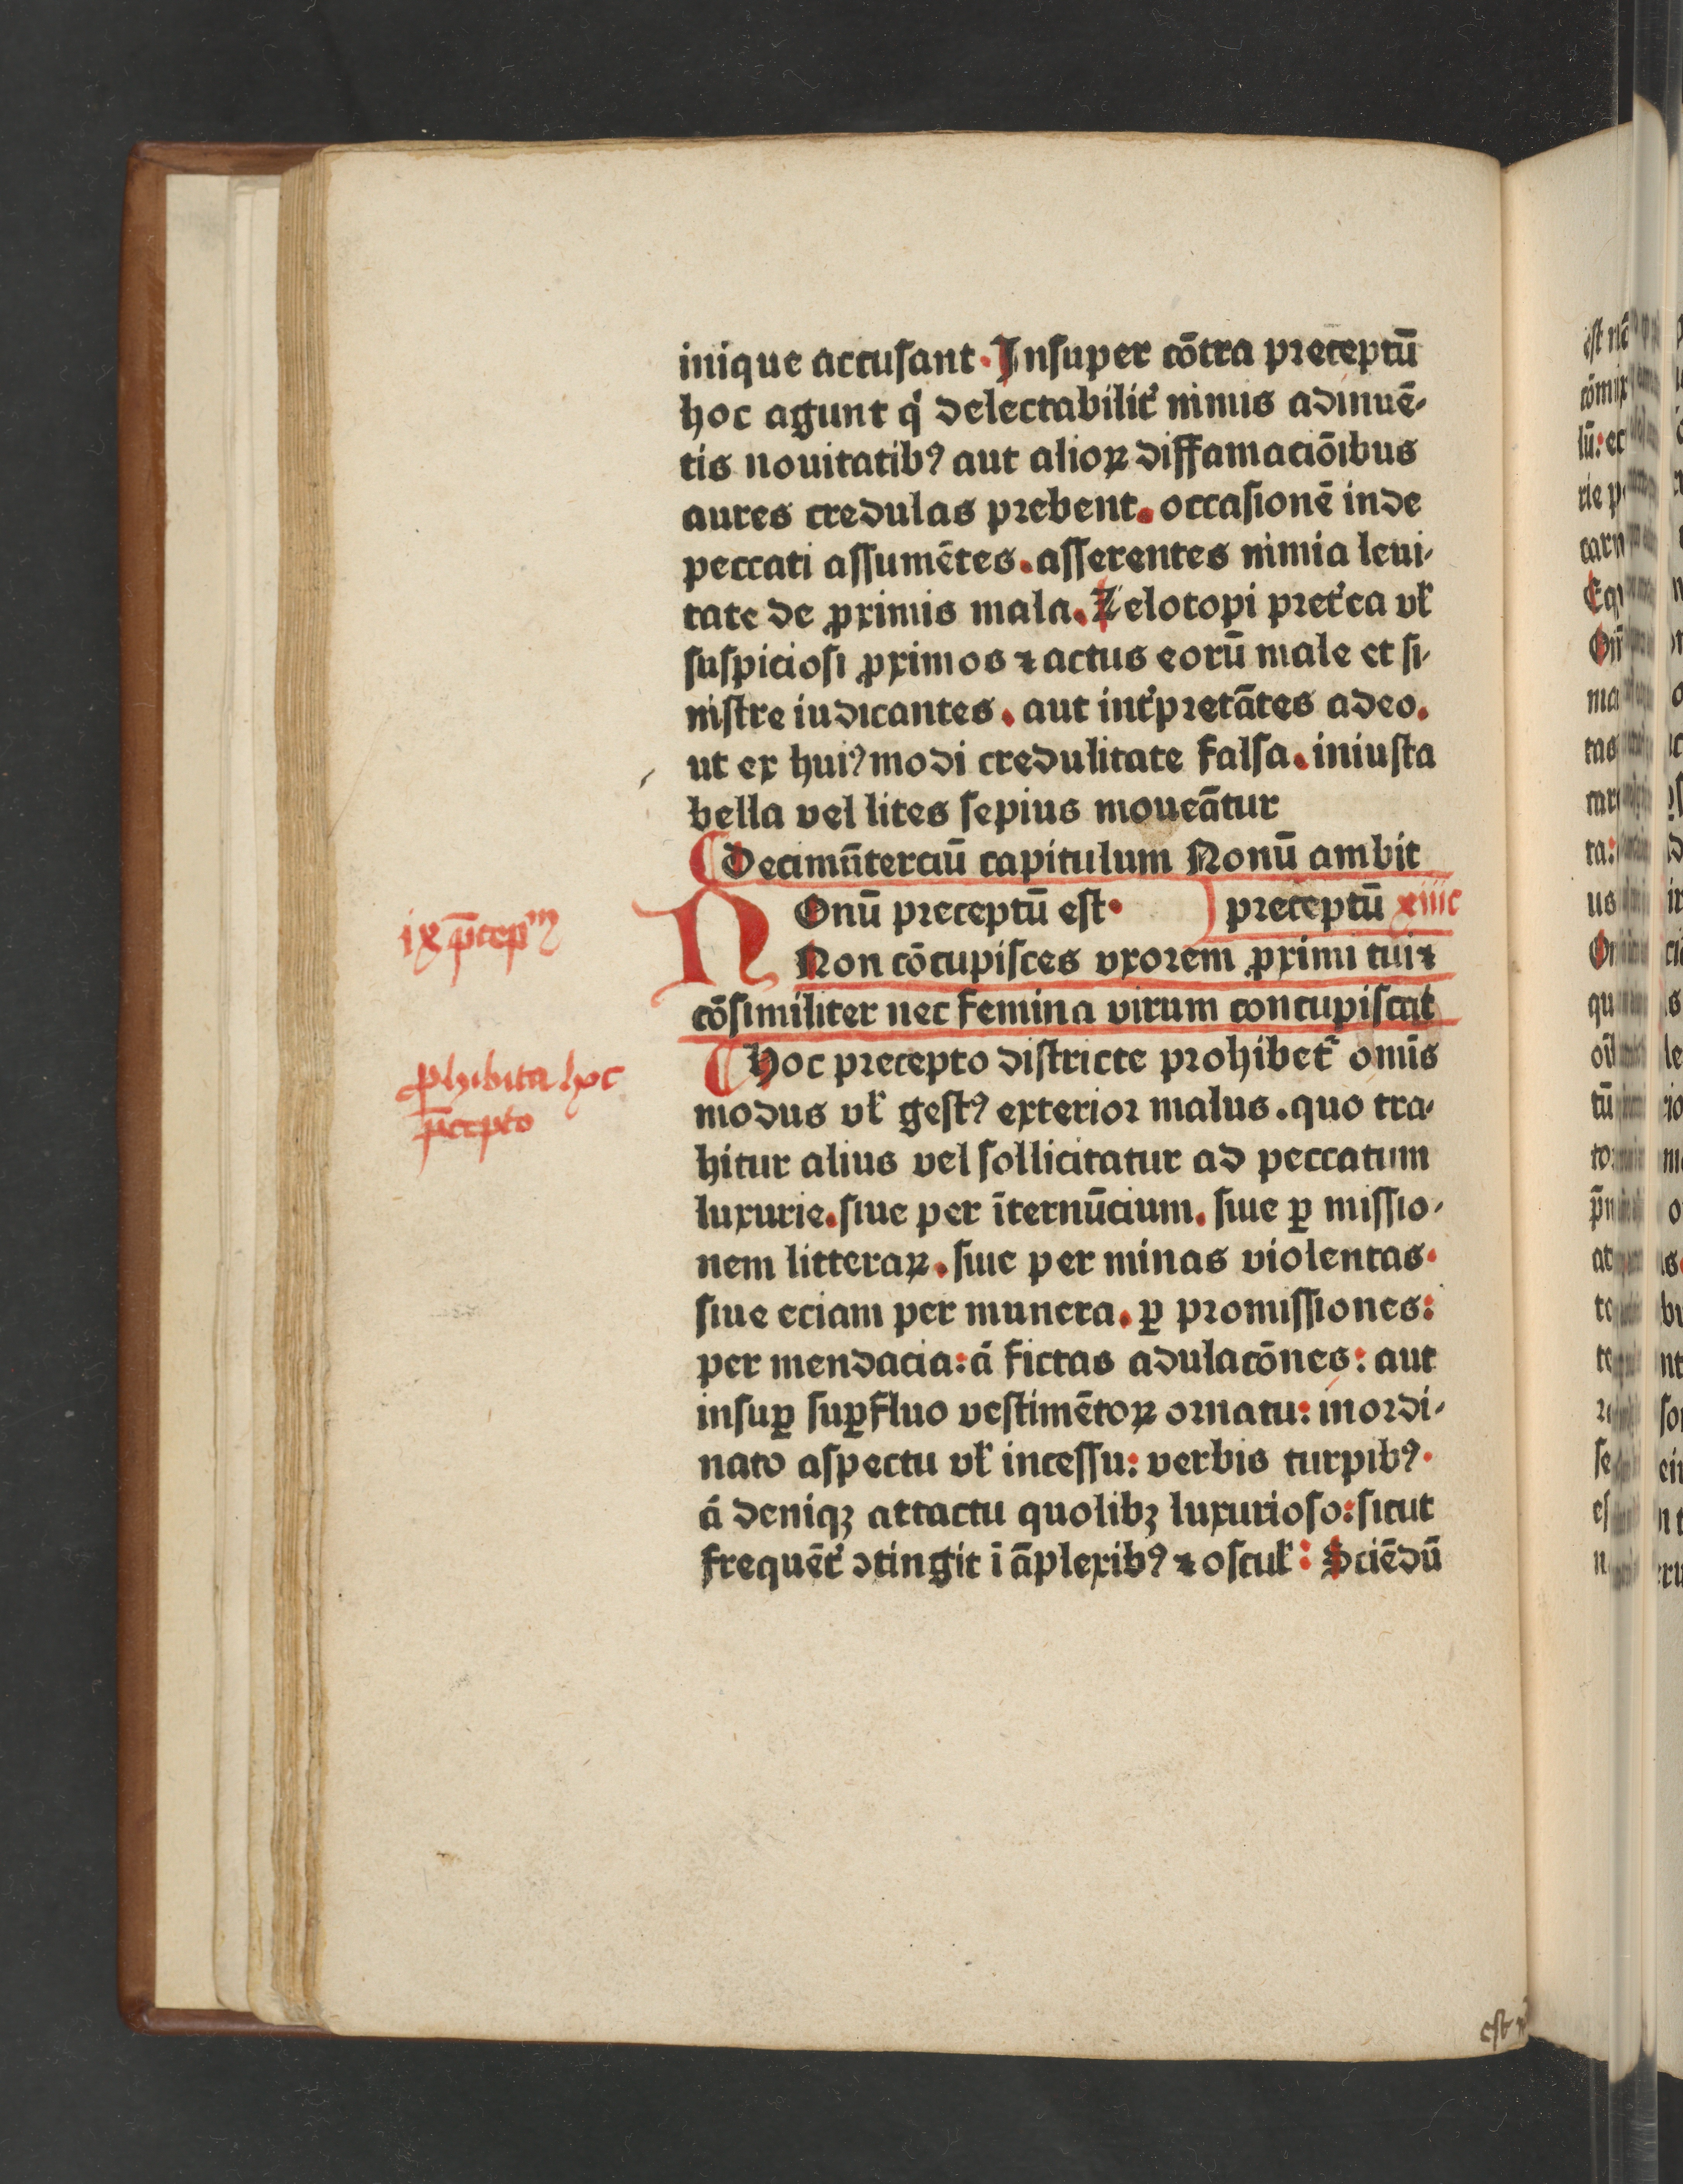 inique accusant. Insuper cōtra preceptū
hoc agunt q' delectabilit' nimis adinuē-
tis nouitatib9 aut alioꝝ diffamaciōibus
aures credulas prebent. occasionē inde
peccati assumētes. asserentes nimia leui-
tate de ꝓximis mala. Zelotopi pret'ea vł
suspiciosi ꝓximos ⁊ actus eorū male et si-
nistre iudicantes. aut int'pretātes adeo.
ut ex hui9modi credulitate falsa. iniusta
bella vel lites sepius moueātur
¶ Decimūterciū capitulum Nonū ambit
NOnū preceptū est. preceptū xiiic
Non cōcupisces vxorem ꝓximi tui ⁊
cōsimiliter nec femina virum concupiscat
¶ Hoc precepto districte prohibet᷑ omīs
modus vł gest9 exterior malus. quo tra-
hitur alius vel sollicitatur ad peccatum
luxurie. siue per īternūcium. siue ꝑ missio-
nem litteraꝝ. siue per minas violentas.
siue eciam per munera. ꝑ promissiones:
per mendacia: á fictas adulacōnes: aut
insuꝑ suꝑfluo vestimētoꝝ ornatu: inordi-
nato aspectu vł incessu: verbis turpib9.
á deniqꝫ attactu quolibꝫ luxurioso: sicut
frequēt' ꝯtingit ī āplexib9 ⁊ oscuł: Sciēdū
ix p̄cepm
ꝓhibita hoc
p̄cepto